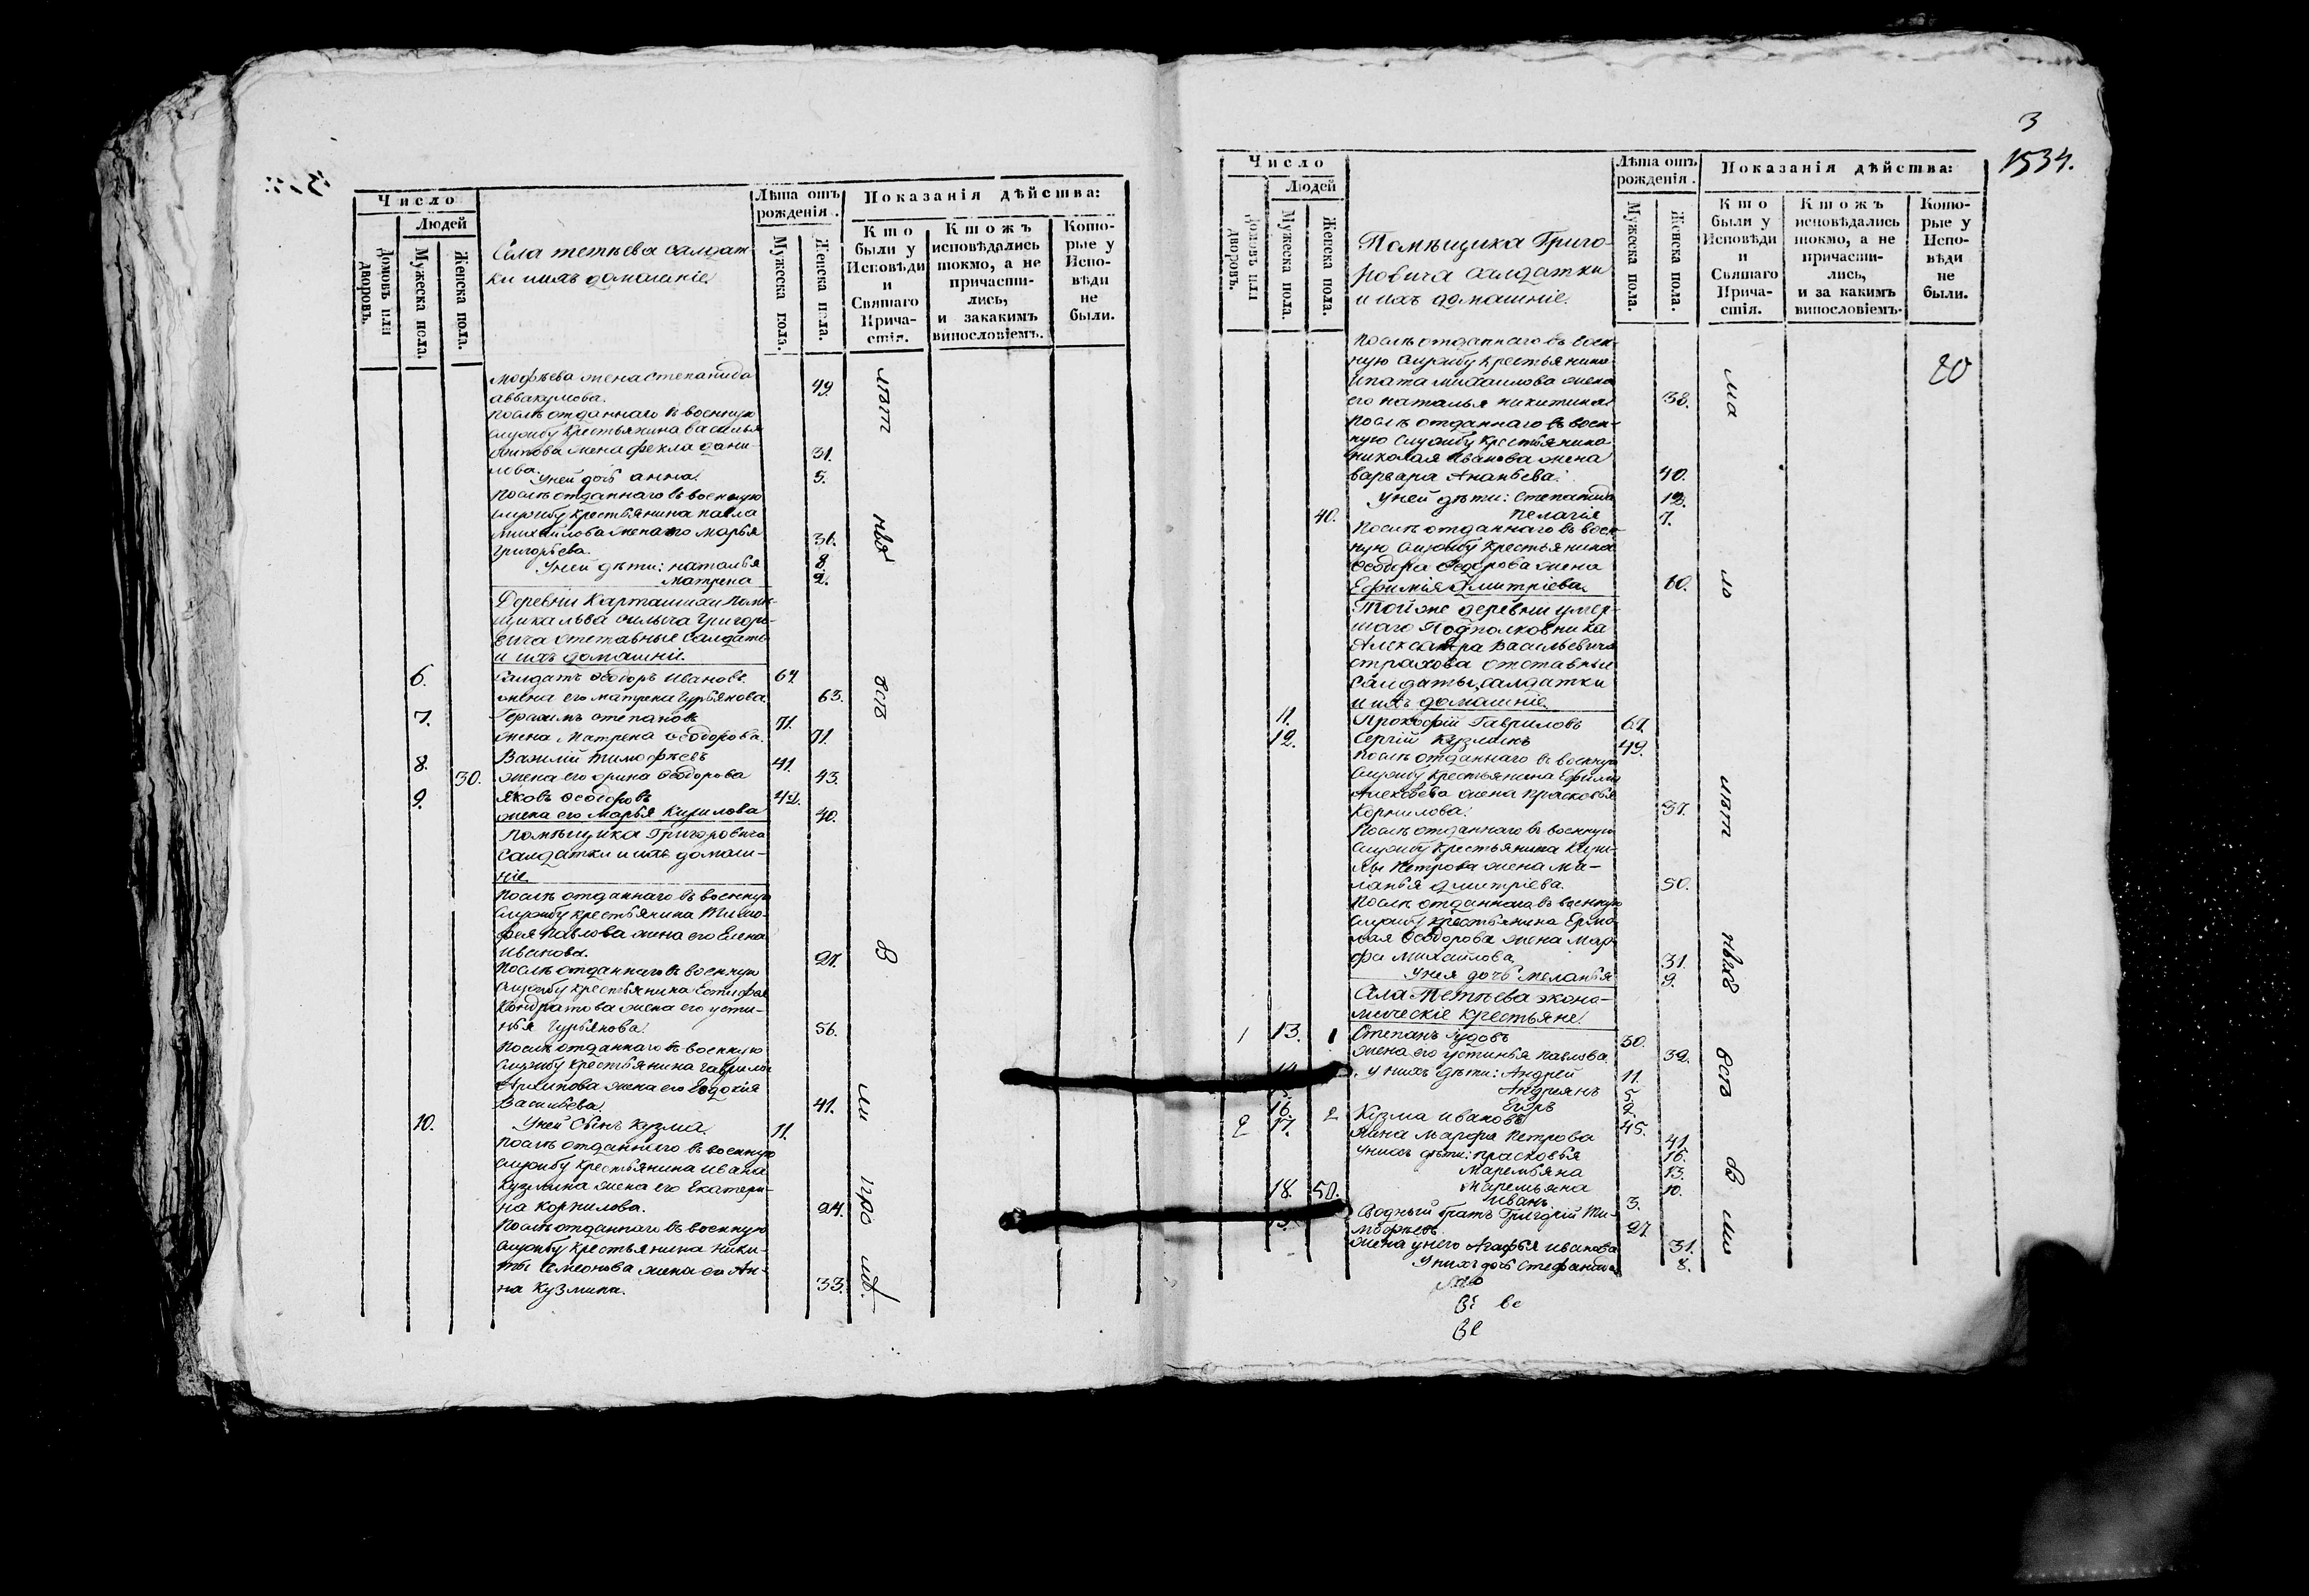 Число
Людей
Домовъ или дворовъ.
Мужеска пола.
Женска пола.
Села тетѣева салдат-
ки ихъ домашніе.
Лѣта отъ рожденія.
Мужеска пола.
Женска пола.
Показанія дѣйства:
Кто были у Исповѣди и Святаго Причастія.
Ктожъ исповѣдались токмо, а не причастились, и закакимъ винословіемъ.
Которые у Исповѣди не были.
мофѣева жена степанида
аввакумова. 49.
послѣ отданнаго въ военную
службу крестьянина василья
жена фекла дани-
лова. 31.
Уней дочь анна. 5.
послѣ отданнаго въ военную
службу крестьянина павла
михайлова жена его марья
григорьева. 36.
Уней дѣти: наталья 8.
матрена 2.
Деревни Карташихи помѣ-
щика льва ильича Григоро-
вича отставные салдаты
и ихъ домашніе.
6. Салдатъ Ѳеодоръ Ивановъ. 64.
жена его матрена Гурьянова. 63.
7. Герасимъ степановъ 71.
жена матрена Ѳеодорова. 71.
8. Василій тимофѣевъ 41.
30. жена его орина Ѳеодорова 43.
9. Яковъ Ѳеодоровъ 42.
жена его Марья Кирилова 40.
Помѣщика Григоровича
Салдатки и ихъ домаш-
ніе.
послѣ отданнаго въ военную
службу крестьянина Тимо-
фея павлова жена его Елена
Иванова. 27.
послѣ отданнаго въ военную
службу крестьянина Естифея
Кондратова жена его усти-
нья Гурьянова. 56.
послѣ отданнаго въ военную
службу крестьянина гаврила
Архипова жена его Евдокія
Васильева. 41.
10. Уней Сынъ Кузма. 11.
послѣ отданнаго въ военную
службу крестьянина Ивана
Кузмина жена его Екатери-
на Корнилова. 24.
послѣ отданнаго въ военную
службу крестьянина Ники-
ты Семенова жена его Ан-
на Кузмина. 33.
3
1534.
Число
Людей
Домовъ или дворовъ.
Мужеска пола.
Женска пола.
Помѣщика Григо-
ровича салдатки
и ихъ домашніе.
Лѣта отъ рожденія.
Мужеска пола.
Женска пола.
Показанія дѣйства:
Кто были у Исповѣди и Святаго Причастія.
Ктожъ исповѣдались токмо, а не причастились, и за какимъ винословіемъ.
Которые у Исповѣди не были.
послѣ отданнаго въ воен-
ную службу крестьянина
Ипата михаилова жена
его наталья никитина 38.
20
послѣ отданнаго въ воен-
ную службу крестьянина
николая Иванова жена
варвара Ананьева. 40.
Уней дѣти: степанида 12.
40. пелагія 7.
послѣ отданнаго въ воен-
ную службу крестьянина
Ѳеодора Ѳеодорова жена
Ефимія Дмитріева. 60.
Той же деревни умер-
шаго Подполковника
Александра Васильевича
страхова отставные
салдаты, салдатки
и ихъ домашніе.
11. Прокофій Гавриловъ 67.
12. Сергій Кузминъ 49.
послѣ отданнаго въ военную
службу крестьянина Ефима
Алексѣева жена прасковья
Корнилова. 37.
послѣ отданнаго въ военную
службу крестьянина Кири-
лы Петрова жена Ма-
ланья дмитріева. 50.
послѣ отданнаго въ военную
службу крестьянина Ермо-
лая Ѳеодорова жена Мар-
фа Михаилова 31.
Унея дочь меланья 9.
Села Тетѣева эконо-
мическіе крестьяне.
1 13. 1 Степанъ 30.
жена его устинья павлова. 32.
у нихъ дѣти: Андрей 11.
Андреянъ 5.
16. Егоръ 2.
2 17. 2 Кузма ивановъ 45.
жена марфа петрова 41.
унихъ дѣти: прасковья 16.
маремьяна 13.
маремьяна 10.
18. 50. иванъ 3.
Сводный братъ Григорій Ти-
мофѣевъ 27.
жена унего Агафья иванова 31.
Унихъ дочь стефанида 8.
ве
ве